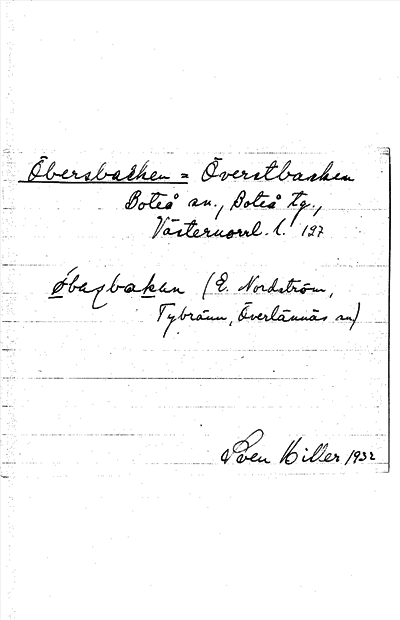 Öbersbacken = Överstbacken
Boteå sn., Boteå tg.,
Västernorrl. l. 197
(E. Nordström,
Tybränn, Överlännäs sn)
Sven Hiller 1932